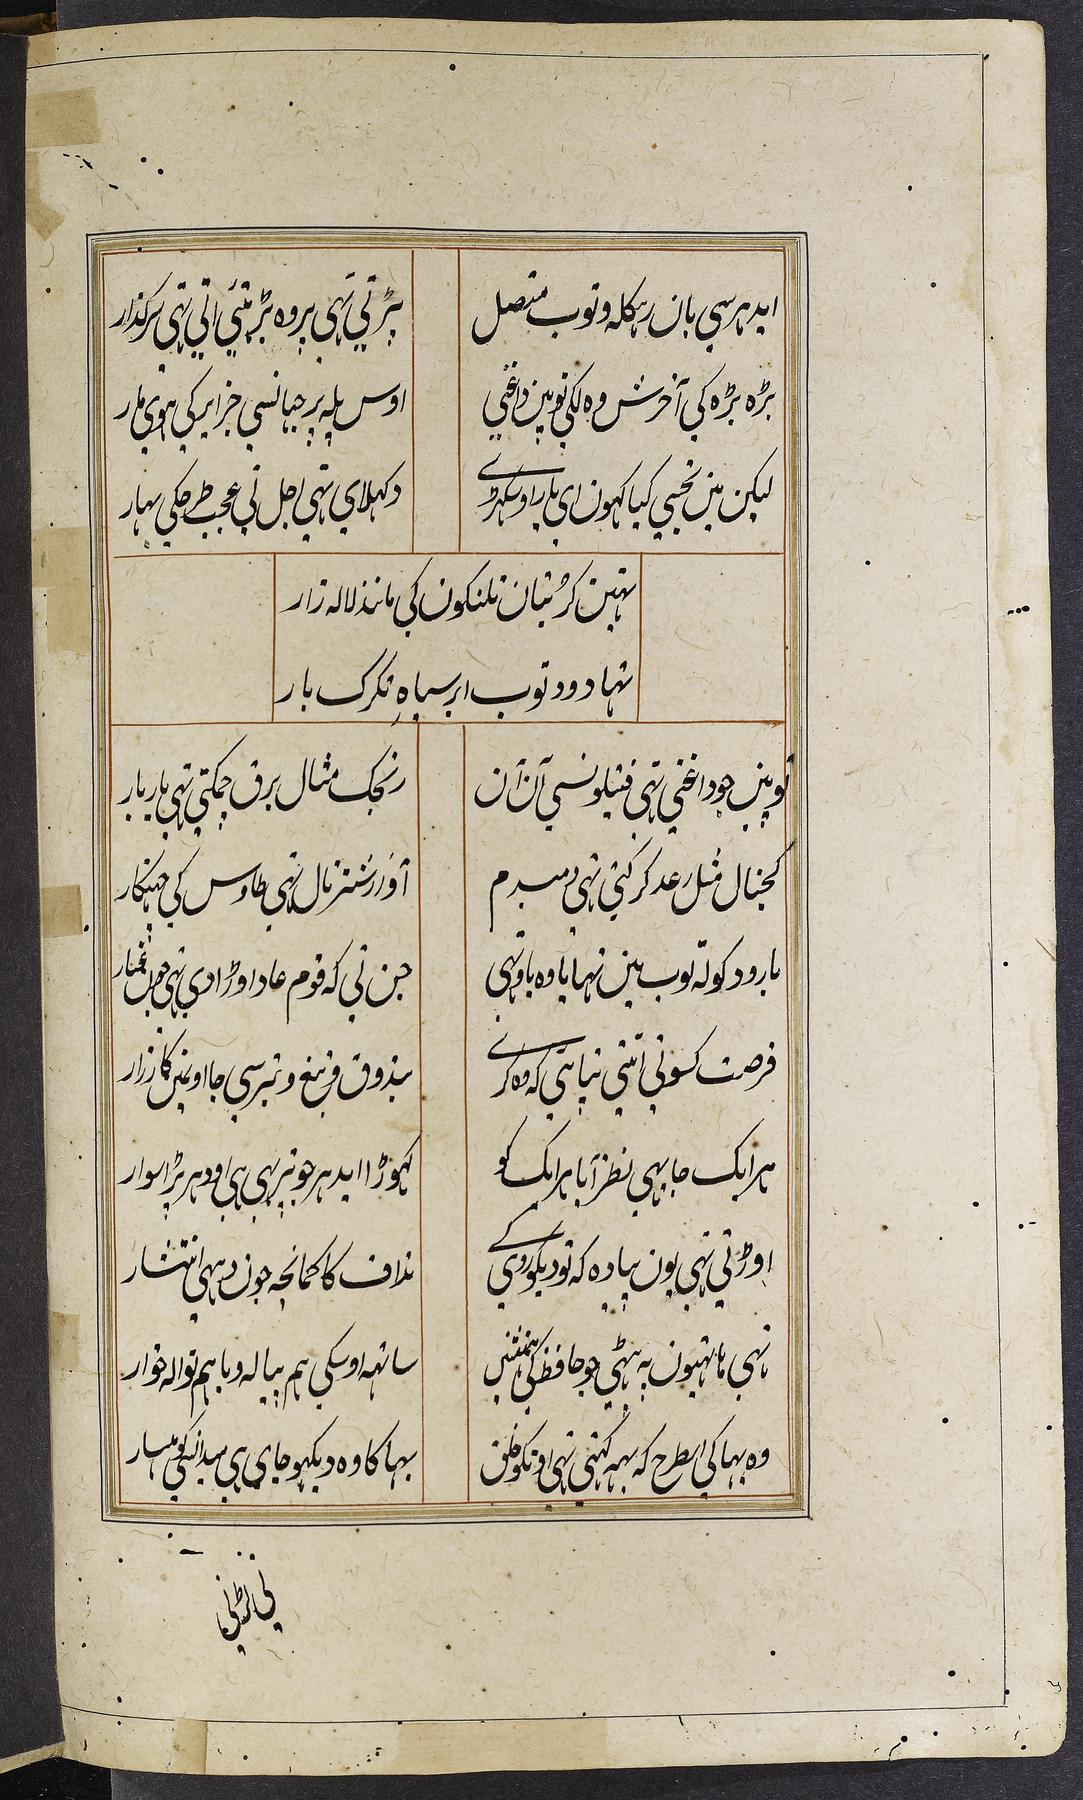 ایدہر سی بان رہکلہ و توب متصل
پڑتی تہی پر وہ بڑہتئی اتی تہی سرکذار
بڑہ بڑہ کی آخرش وہ لکی توپین داغنی
اوس پلہ پر جہانسی
لیکن مین تجہی کیا کہون ای یار اوسکہڑے
دکہلای تہی اجل نی عجب طرحکی بہار
تہین کرتیان تلنکون کی مانند لالہ زار
تہا دود توب ابر سیاہ تکرک بار
توپین جو داغنی تہی فتیلونسی آن آن
رنجک مثال برق چمکتی تہی بار بار
کجنال مثل رعد کرکتی تہی دمبدم
آواز شترنال تہی طاوس کی جہنکار
بارود کولہ توب مین تہا یا وہ باو تہی
جن نی کہ قوم عاد اوڑادی تہی جون غبار
فرصت کسونی اتنی نپاتی کہ وہ کرے
بندوق و تیغ و تیر سی جا اونمین کارزار
ہرایک جا یہی نظر آیا ہرایک کو
کہوڑا ایدہر جو تیر ہی ہی اودہر پڑا سوار
اوڑتی تہی یون پیادہ کہ تو دیکو روی کے
نداف کا کمانچہ جون دیہی انتشار
تہی ہاتہیون پہ بیٹہی جو حافظ کی ہمنشین
ساتہہ اوسکی ہم پیالہ و باہم نوالہ خوار
وہ بہاکی اسطرح کہ یہہ کہتی تہی اونکو خلق
بہاکا وہ دیکہو جای ہی میدانکی
نی لڑنی